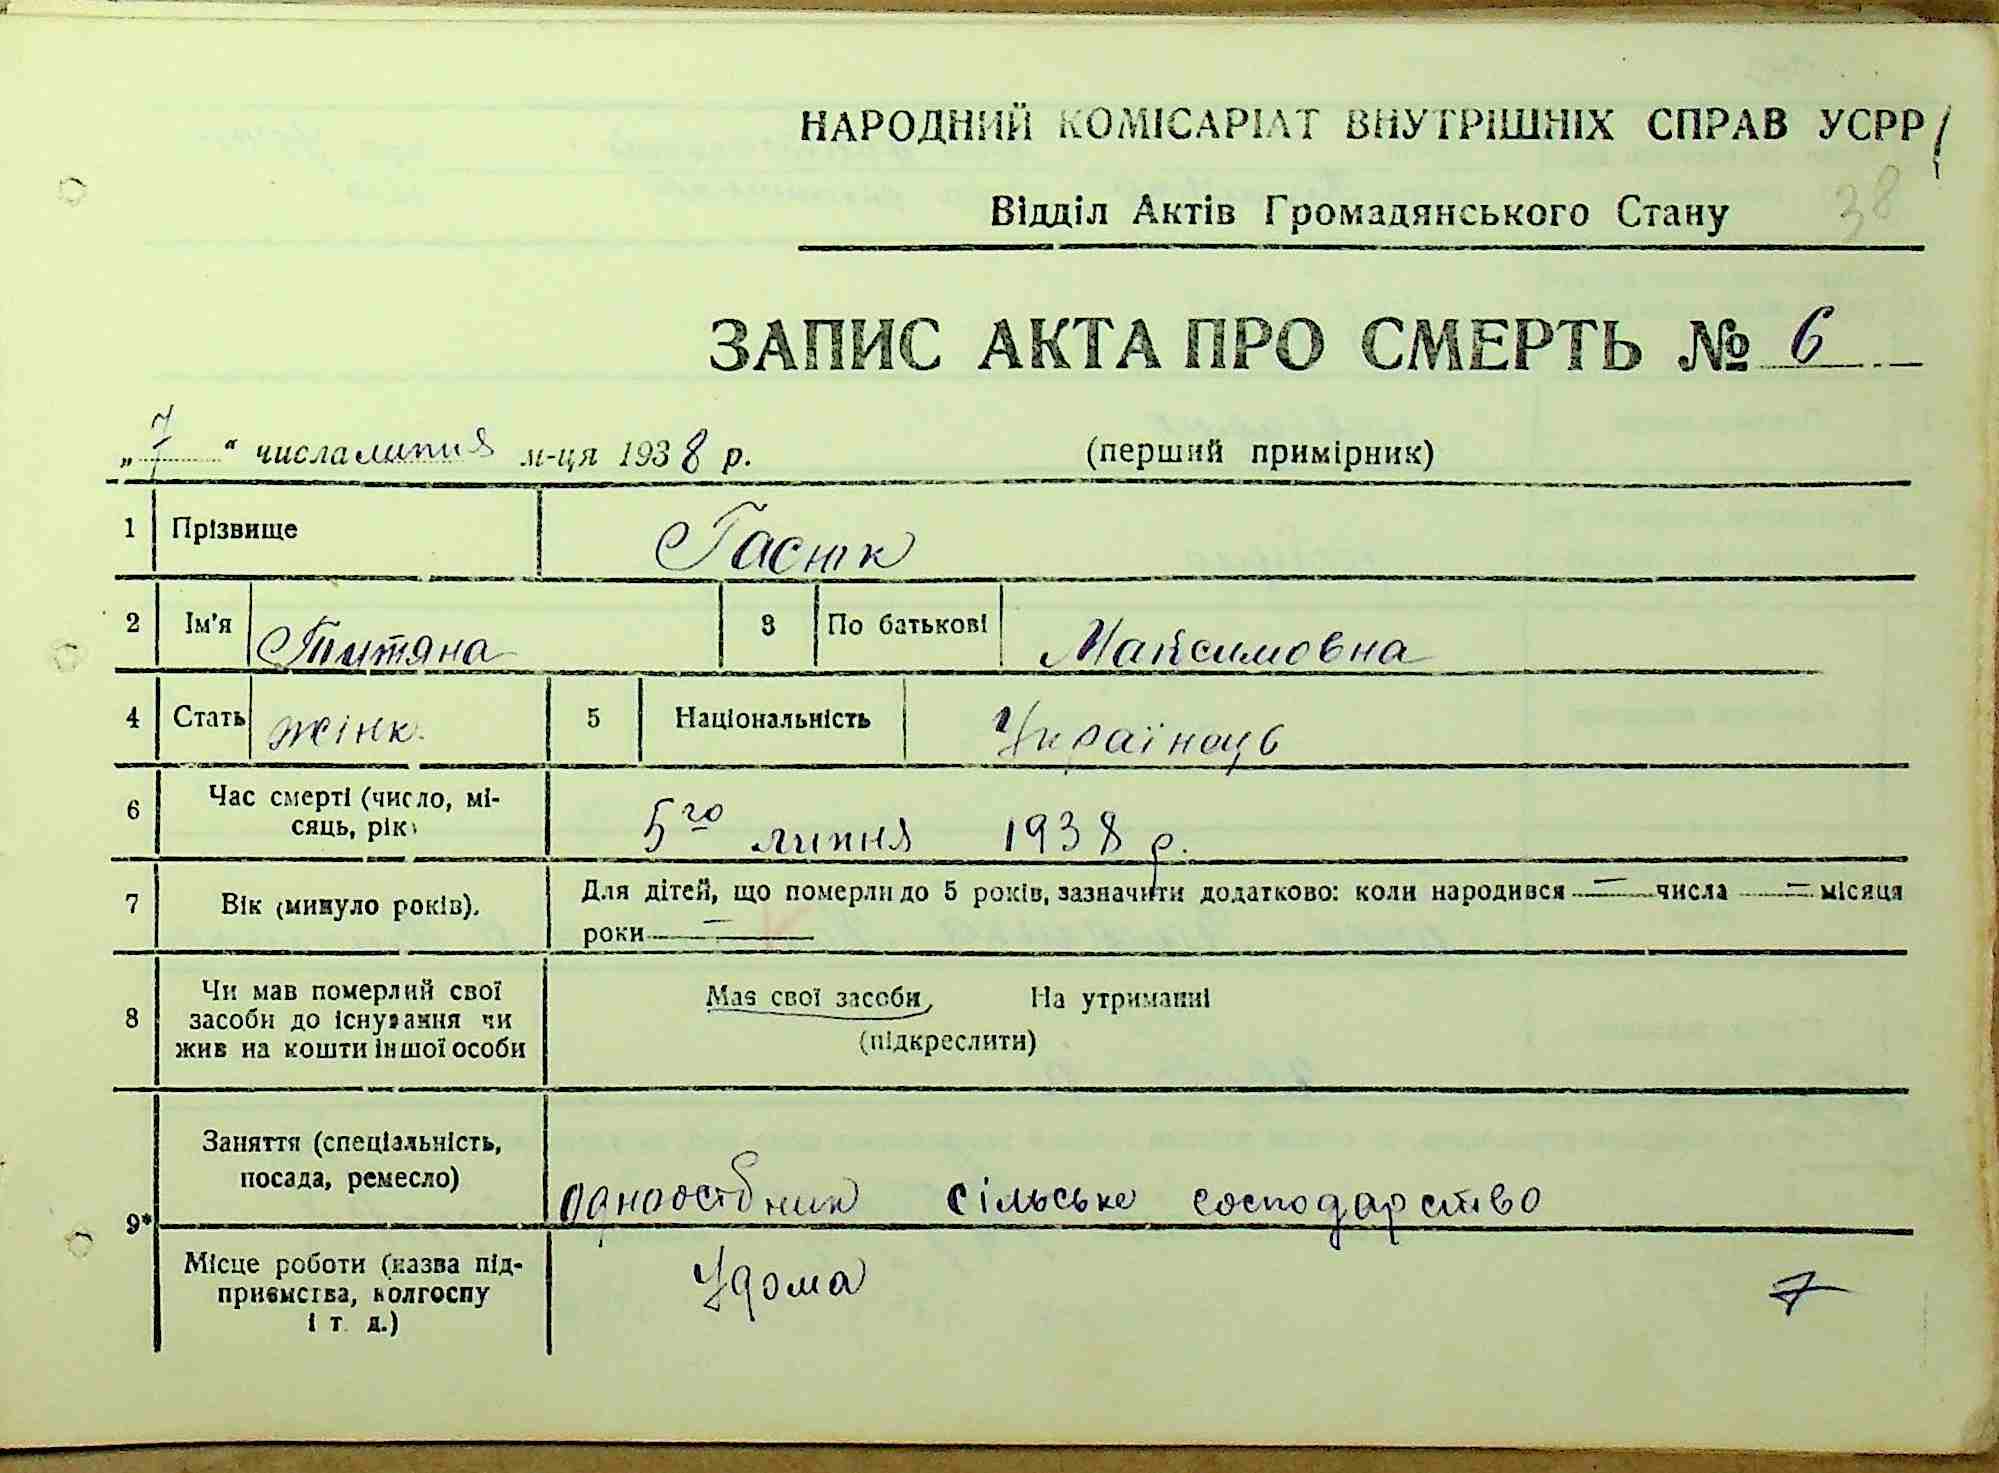 НАРОДНИЙ КОМІСАРІАТ ВНУТРІШНІХ СПРАВ УСРР
38
Відділ Актів Громадянського Стану
ЗАПИС АКТА ПРО СМЕРТЬ № 6
„7“ числа липня м-ця 1938 р. (перший примірник)
1 Прізвище
2 Ім'я 3 По батькові Максимовна
4 Стать жінк. 5 Національність Українець
6 Час смерті (число, мі-
сяць, рік) 5го липня 1938 р.
7 Вік (минуло років). Для дітей, що померли до 5 років, зазначити додатково: коли народився — числа — місяця
роки —
8 Чи мав померлий свої
засоби до існування чи
жив на кошти іншої особи
Має свої засоби, На утриманні
(підкреслити)
9* Заняття (спеціальність,
посада, ремесло) сільське господарство
Місце роботи (назва під-
приємства, колгоспу
і т. д.) Удома 7